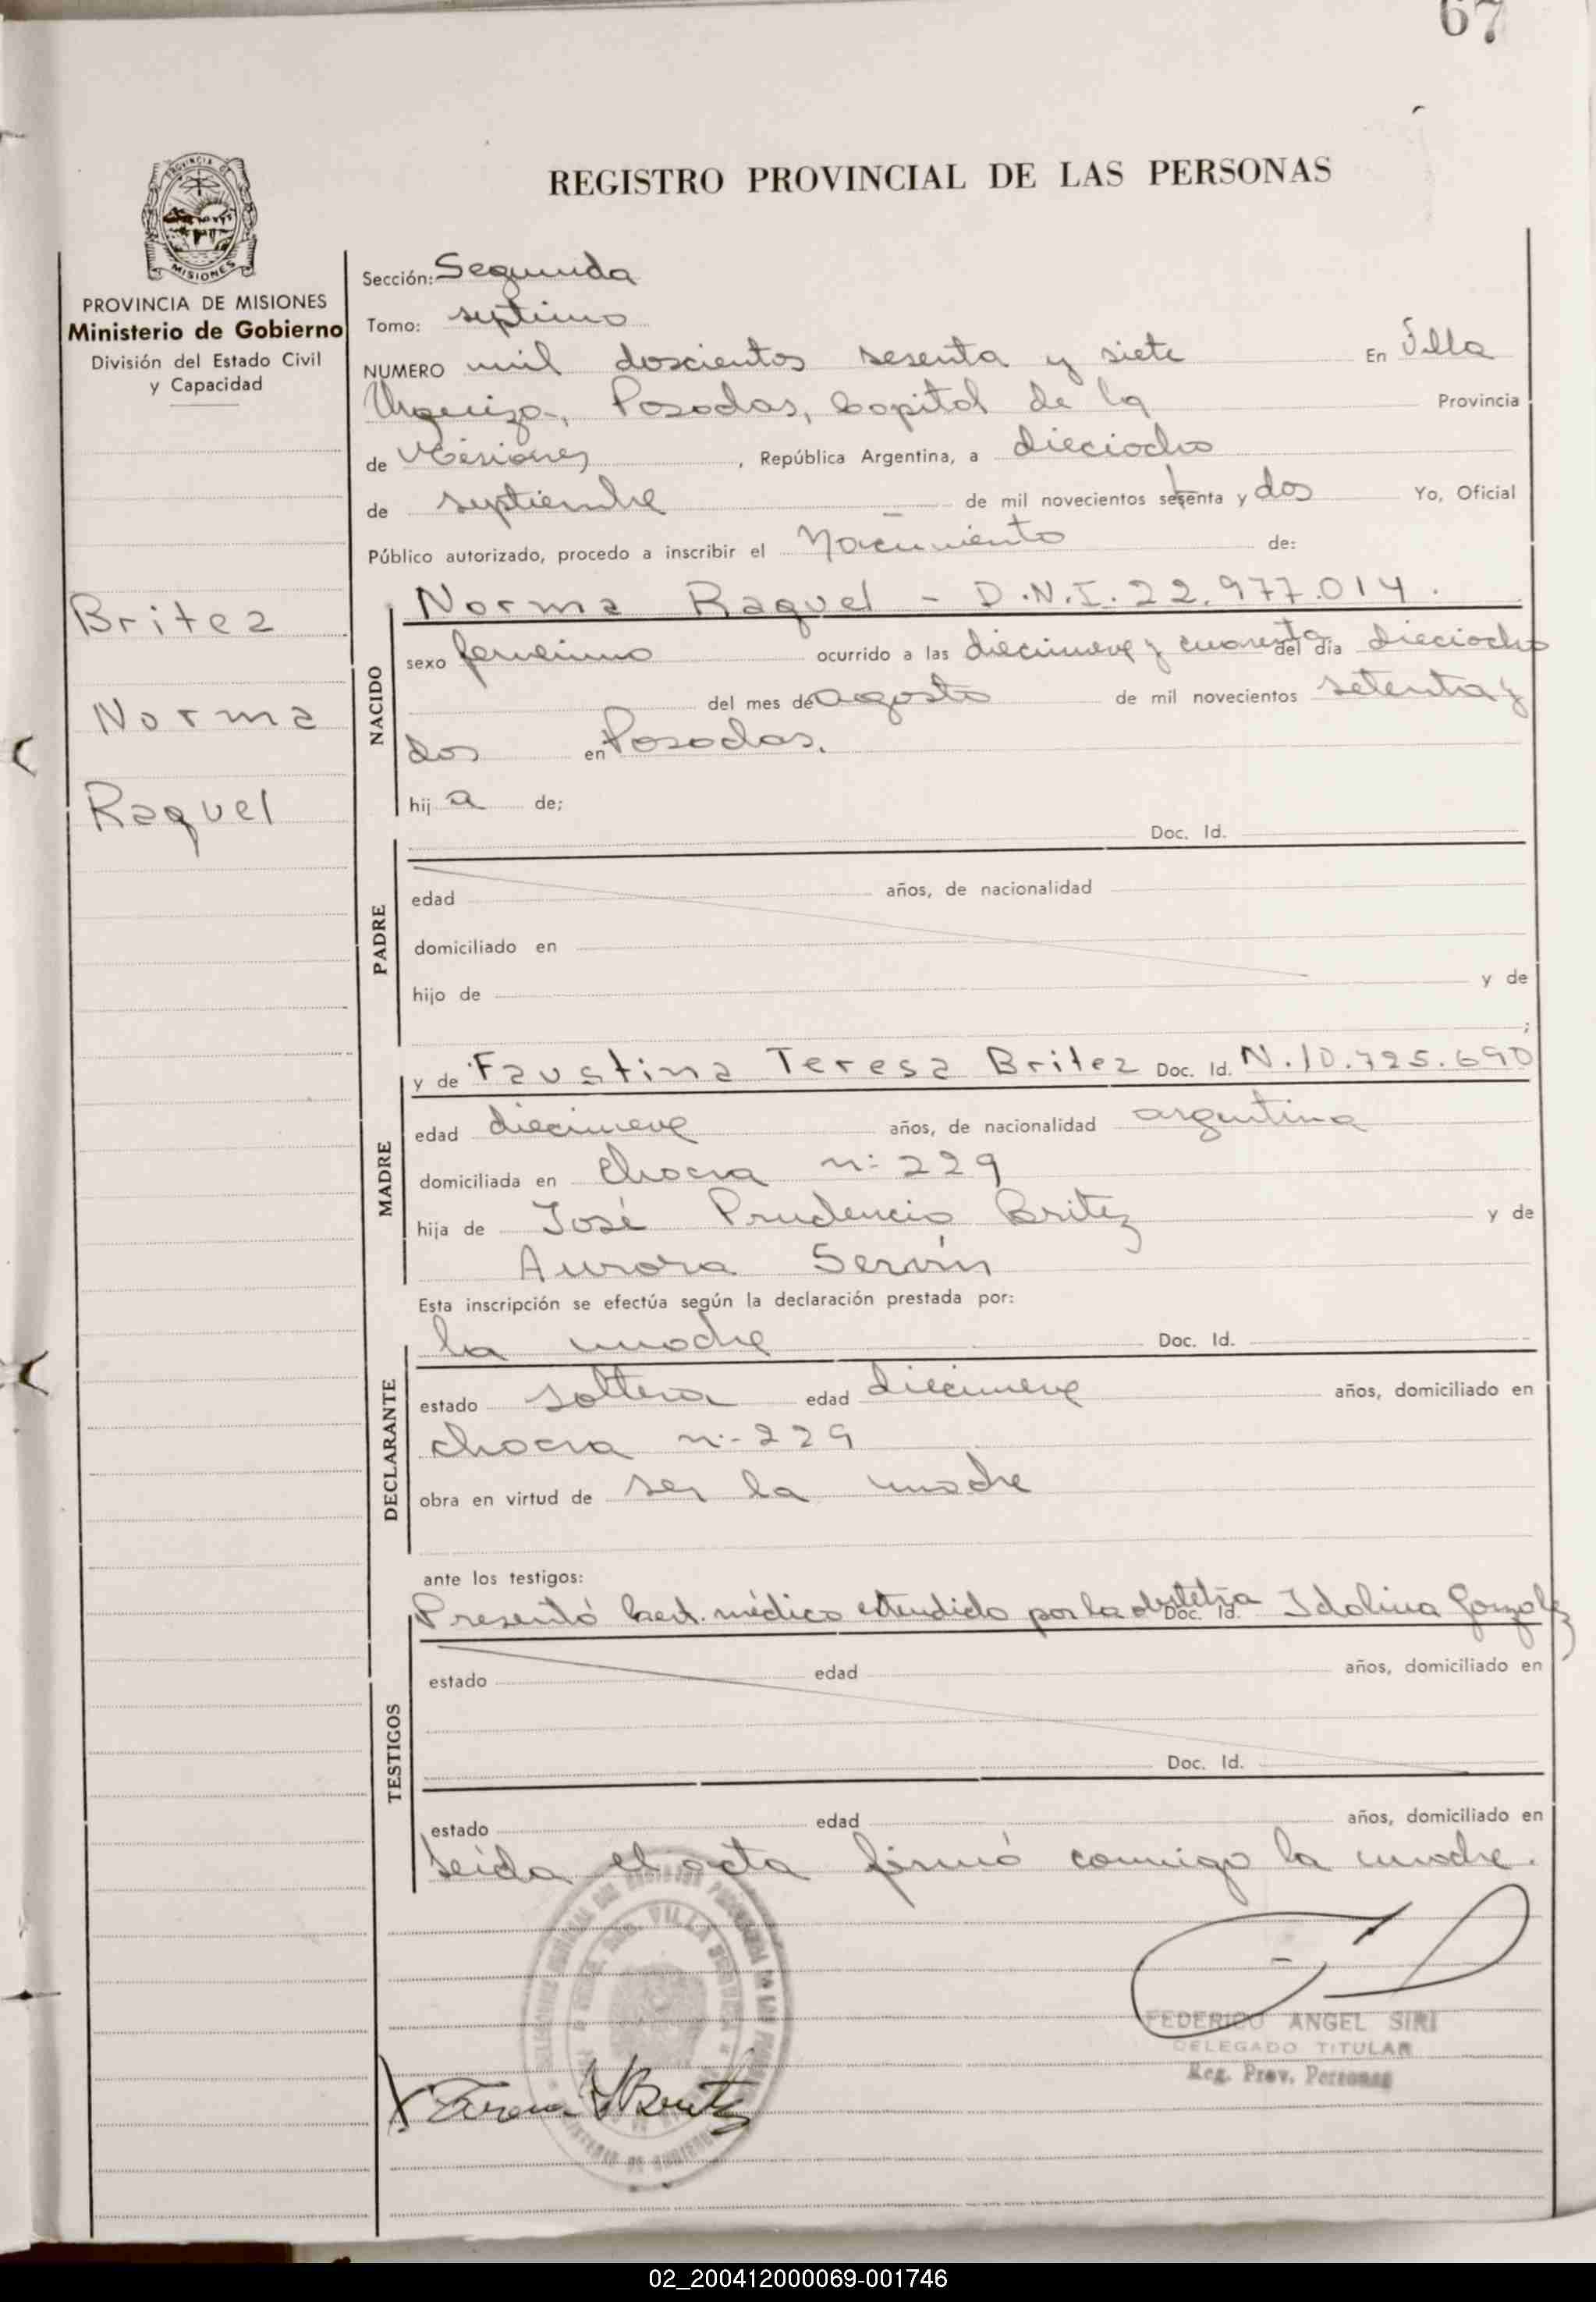 67
REGISTRO PROVINCIAL DE LAS PERSONAS
MISIONES
PROVINCIA DE MISIONES
Ministerio de Gobierno
División del Estado Civil
y Capacidad
Britez
Norma
Raquel
Sección: Segunda
Tomo: septimo
NUMERO mil doscientos sesenta y siete En Villa
Urquiza, Posadas, Capital de la Provincia
de Misiones, República Argentina, a dieciocho
de septiembre de mil novecientos setenta y dos Yo, Oficial
Público autorizado, procedo a inscribir el Nacimiento de:
NACIDO
Norma Raquel - D.N.I. 22.977.014.
sexo femenino ocurrido a las diecinueve y cuarenta del día dieciocho
del mes de agosto de mil novecientos setenta y
dos en Posadas.
hija de;
PADRE
Doc. Id.
edad años, de nacionalidad
domiciliado en
hijo de y de
;
MADRE
y de Faustina Teresa Britez Doc. Id. N.10.725.690
edad diecinueve años, de nacionalidad argentina
domiciliada en Chacra nº 229
hija de José Prudencio Britez y de
Aurora Servín
Esta inscripción se efectúa según la declaración prestada por:
DECLARANTE
la madre Doc. Id.
estado soltera edad diecinueve años, domiciliado en
chacra nº 229
obra en virtud de ser la madre
ante los testigos:
TESTIGOS
Presentó Cert. médico extendido por la obstetra Doc. Id. Idolina Gonzalez
estado edad años, domiciliado en
Doc. Id.
estado edad años, domiciliado en
Leída el acta firmó conmigo la madre.
FEDERICO ANGEL SIRI
DELEGADO TITULAR
Reg. Prov. Personas
02_200412000069-001746